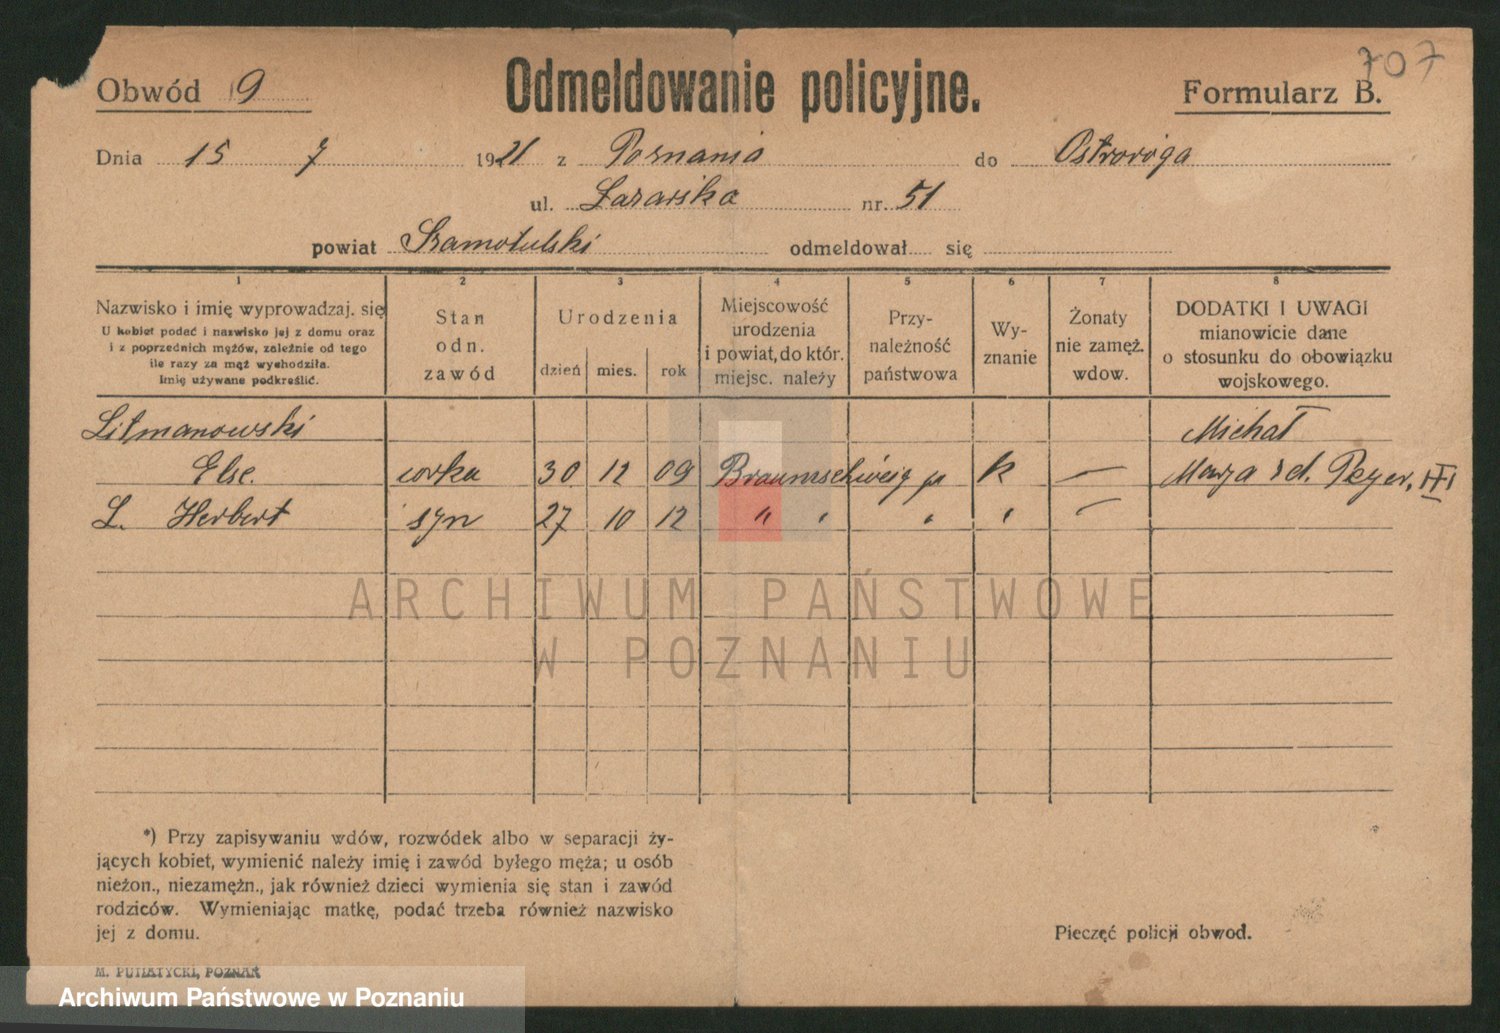 707
Obwód 9 Odmeldowanie policyjne. Formularz B.
Dnia 15 7 1921 z Poznania do Ostroroga
ul. Łazarska nr. 51
powiat Szamotulski odmeldował się
1 2 3 4 5 6 7 8
Nazwisko i imię wyprowadzaj. się
U kobiet podać i nazwisko jej z domu oraz
i z poprzednich mężów, zależnie od tego
ile razy za mąż wychodziła.
Imię używane podkreślić.
Stan
odn.
zawód
Urodzenia
dzień mies. rok
Miejscowość
urodzenia
i powiat, do któr.
miejsc. należy
Przy-
należność
państwowa
Wy-
znanie
Żonaty
nie zamęż.
wdow.
DODATKI I UWAGI
mianowicie dane
o stosunku do obowiązku
wojskowego.
Litmanowski Michał
Else. corka 30 12 09 Braunschweig p k — Marja zd. Peyer, III
L. Herbert syn 27 10 12 " " " " —
ARCHIWUM PAŃSTWOWE
W POZNANIU
*) Przy zapisywaniu wdów, rozwódek albo w separacji ży-
jących kobiet, wymienić należy imię i zawód byłego męża; u osób
nieżon., niezamężn., jak również dzieci wymienia się stan i zawód
rodziców. Wymieniając matkę, podać trzeba również nazwisko
jej z domu.
Pieczęć policji obwod.
M. PUTIATYCKI, POZNAŃ
Archiwum Państwowe w Poznaniu